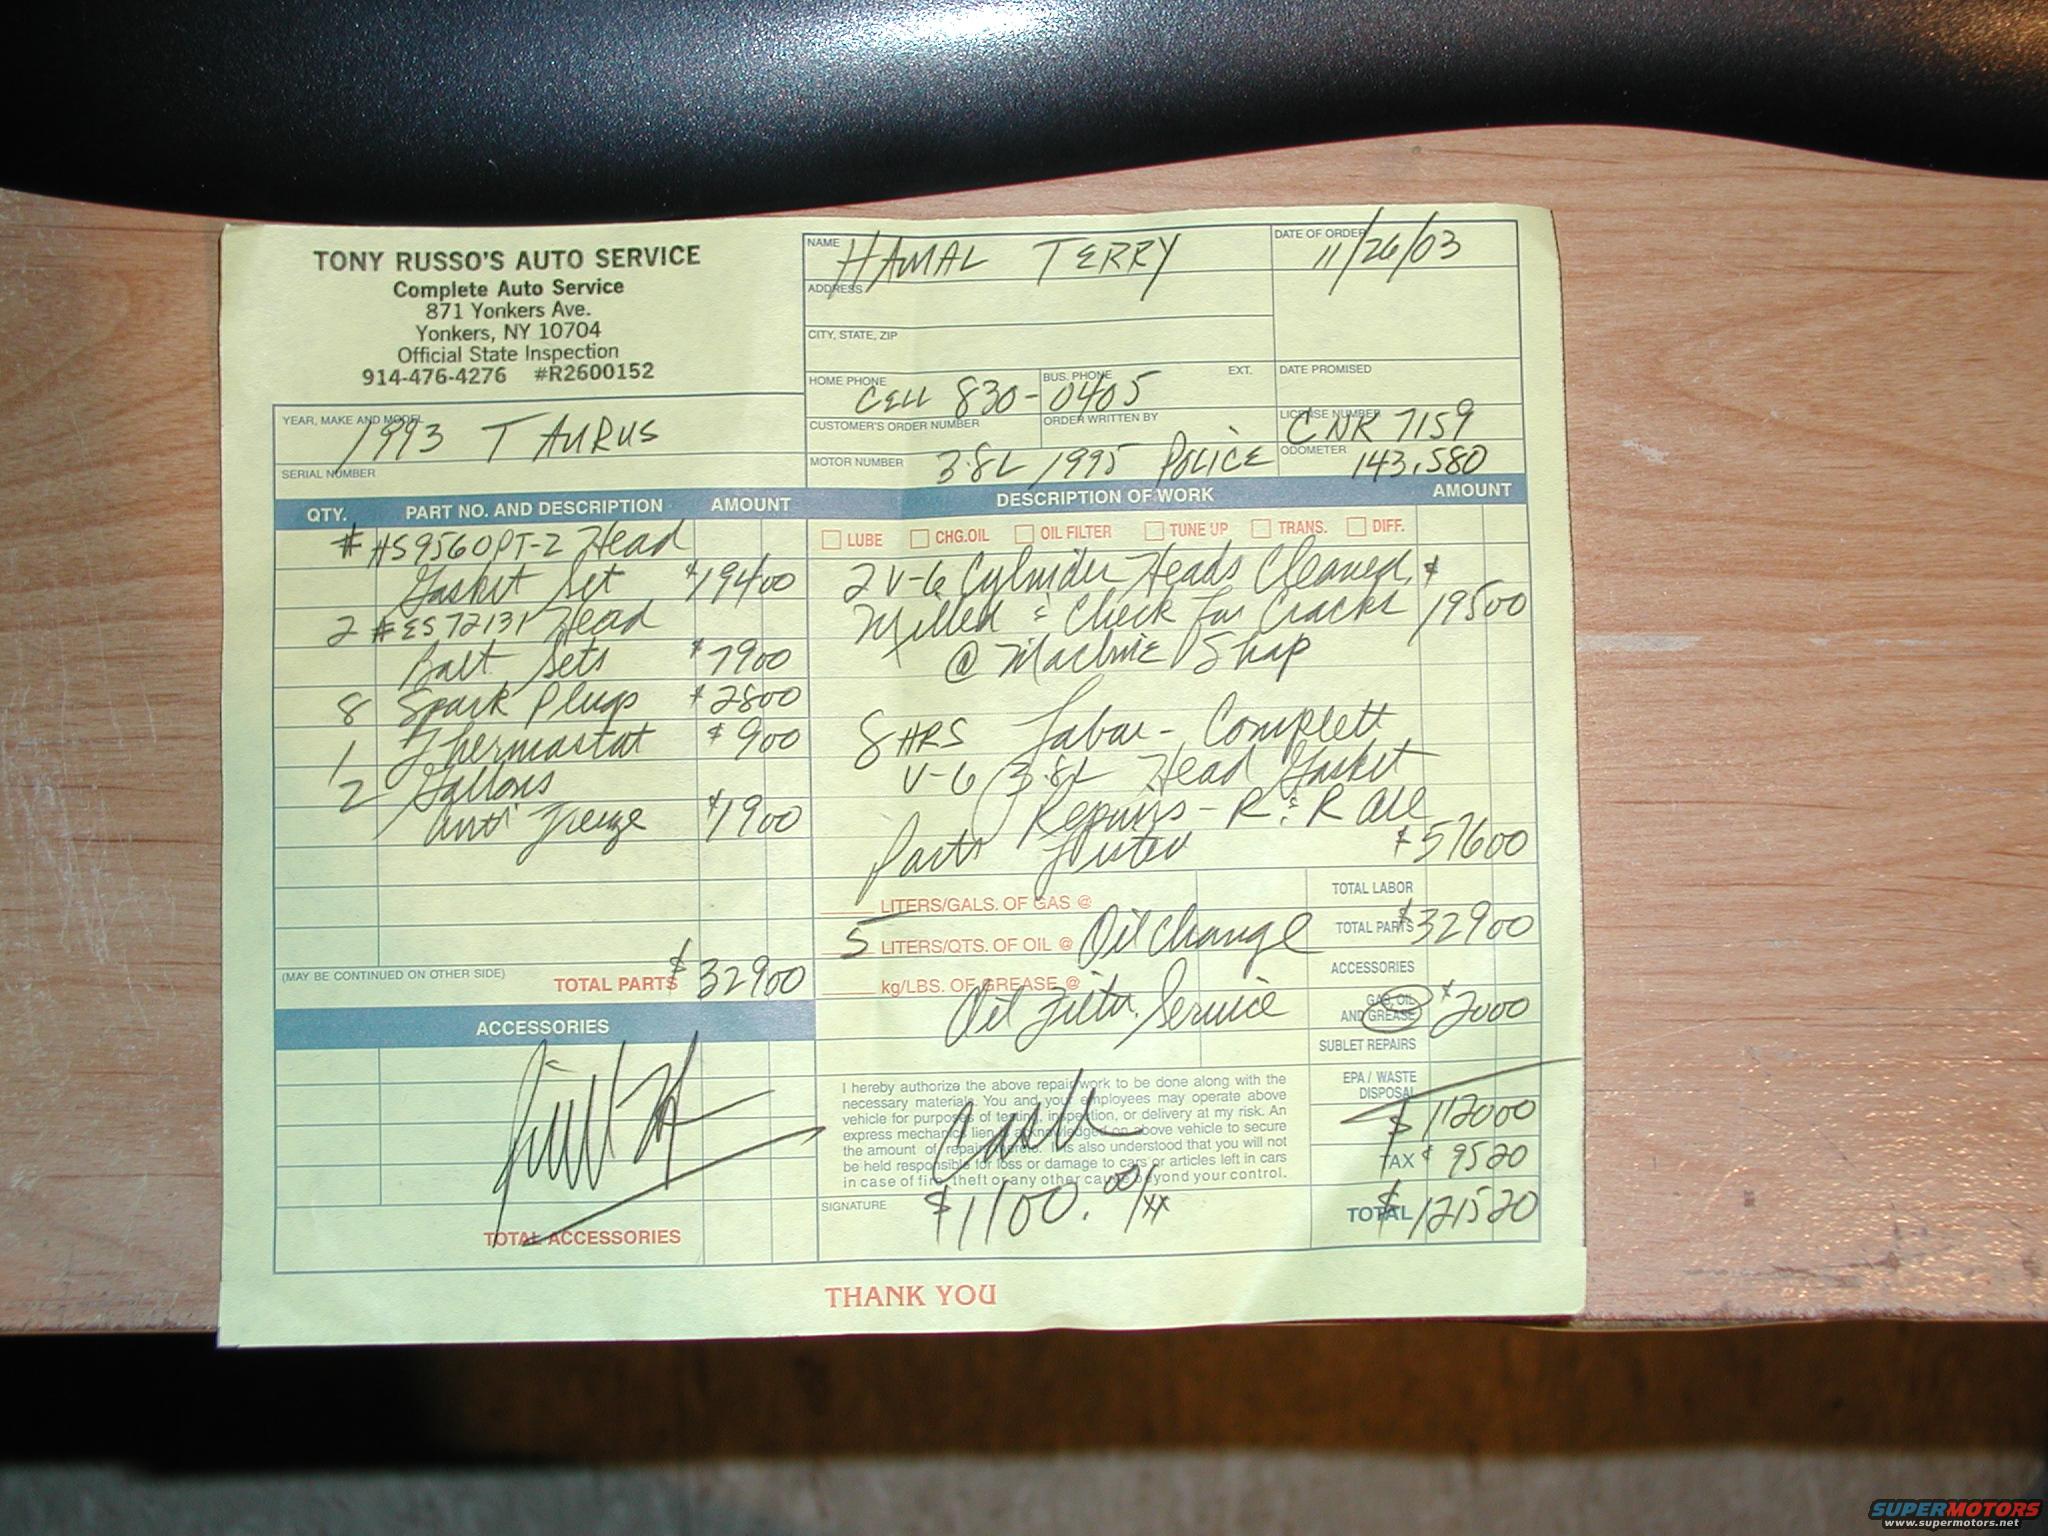 TONY RUSSO'S AUTO SERVICE
Complete Auto Service
871 Yonkers Ave.
Yonkers, NY 10704
Official State Inspection
914-476-4276 #R2600152
NAME HAMAL TERRY
DATE OF ORDER 11/26/03
ADDRESS
CITY, STATE, ZIP
HOME PHONE BUS. PHONE EXT. DATE PROMISED
CELL 830-0405
YEAR, MAKE AND MODEL 1993 TAURUS
CUSTOMER'S ORDER NUMBER ORDER WRITTEN BY LICENSE NUMBER CNR 7159
SERIAL NUMBER
MOTOR NUMBER 3.8L 1995 POLICE ODOMETER 143,580
QTY. PART NO. AND DESCRIPTION AMOUNT
# HS9560PT-2 Head
Gasket Set $194 00
2 #ES72131 Head
Bolt Sets $79 00
8 Spark Plugs $28 00
1 Thermostat $9 00
2 Gallons
Anti Freeze $19 00
(MAY BE CONTINUED ON OTHER SIDE) TOTAL PARTS $329 00
ACCESSORIES
TOTAL ACCESSORIES
DESCRIPTION OF WORK AMOUNT
LUBE CHG.OIL OIL FILTER TUNE UP TRANS. DIFF.
2 V-6 Cylinder Heads Cleaned, $
Milled & Check For Cracks 195 00
@ Machine Shop
8 HRS Labor - Complett
V-6 3.8L Head Gasket
Repairs - R & R All
Parts Listed $576 00
TOTAL LABOR
LITERS/GALS. OF GAS @
TOTAL PARTS $329 00
5 LITERS/QTS. OF OIL @ Oil Change
ACCESSORIES
kg/LBS. OF GREASE @
Oil Filter Service
GAS, OIL
AND GREASE $20 00
SUBLET REPAIRS
EPA / WASTE
DISPOSAL
$1120 00
TAX $95 20
TOTAL $1215 20
I hereby authorize the above repair work to be done along with the
necessary material. You and your employees may operate above
vehicle for purposes of testing, inspection, or delivery at my risk. An
express mechanics lien is acknowledged on above vehicle to secure
the amount of repairs thereto. It is also understood that you will not
be held responsible for loss or damage to cars or articles left in cars
in case of fire, theft or any other cause beyond your control.
Cash
SIGNATURE $1100. 00/xx
THANK YOU
SUPERMOTORS
www.supermotors.net